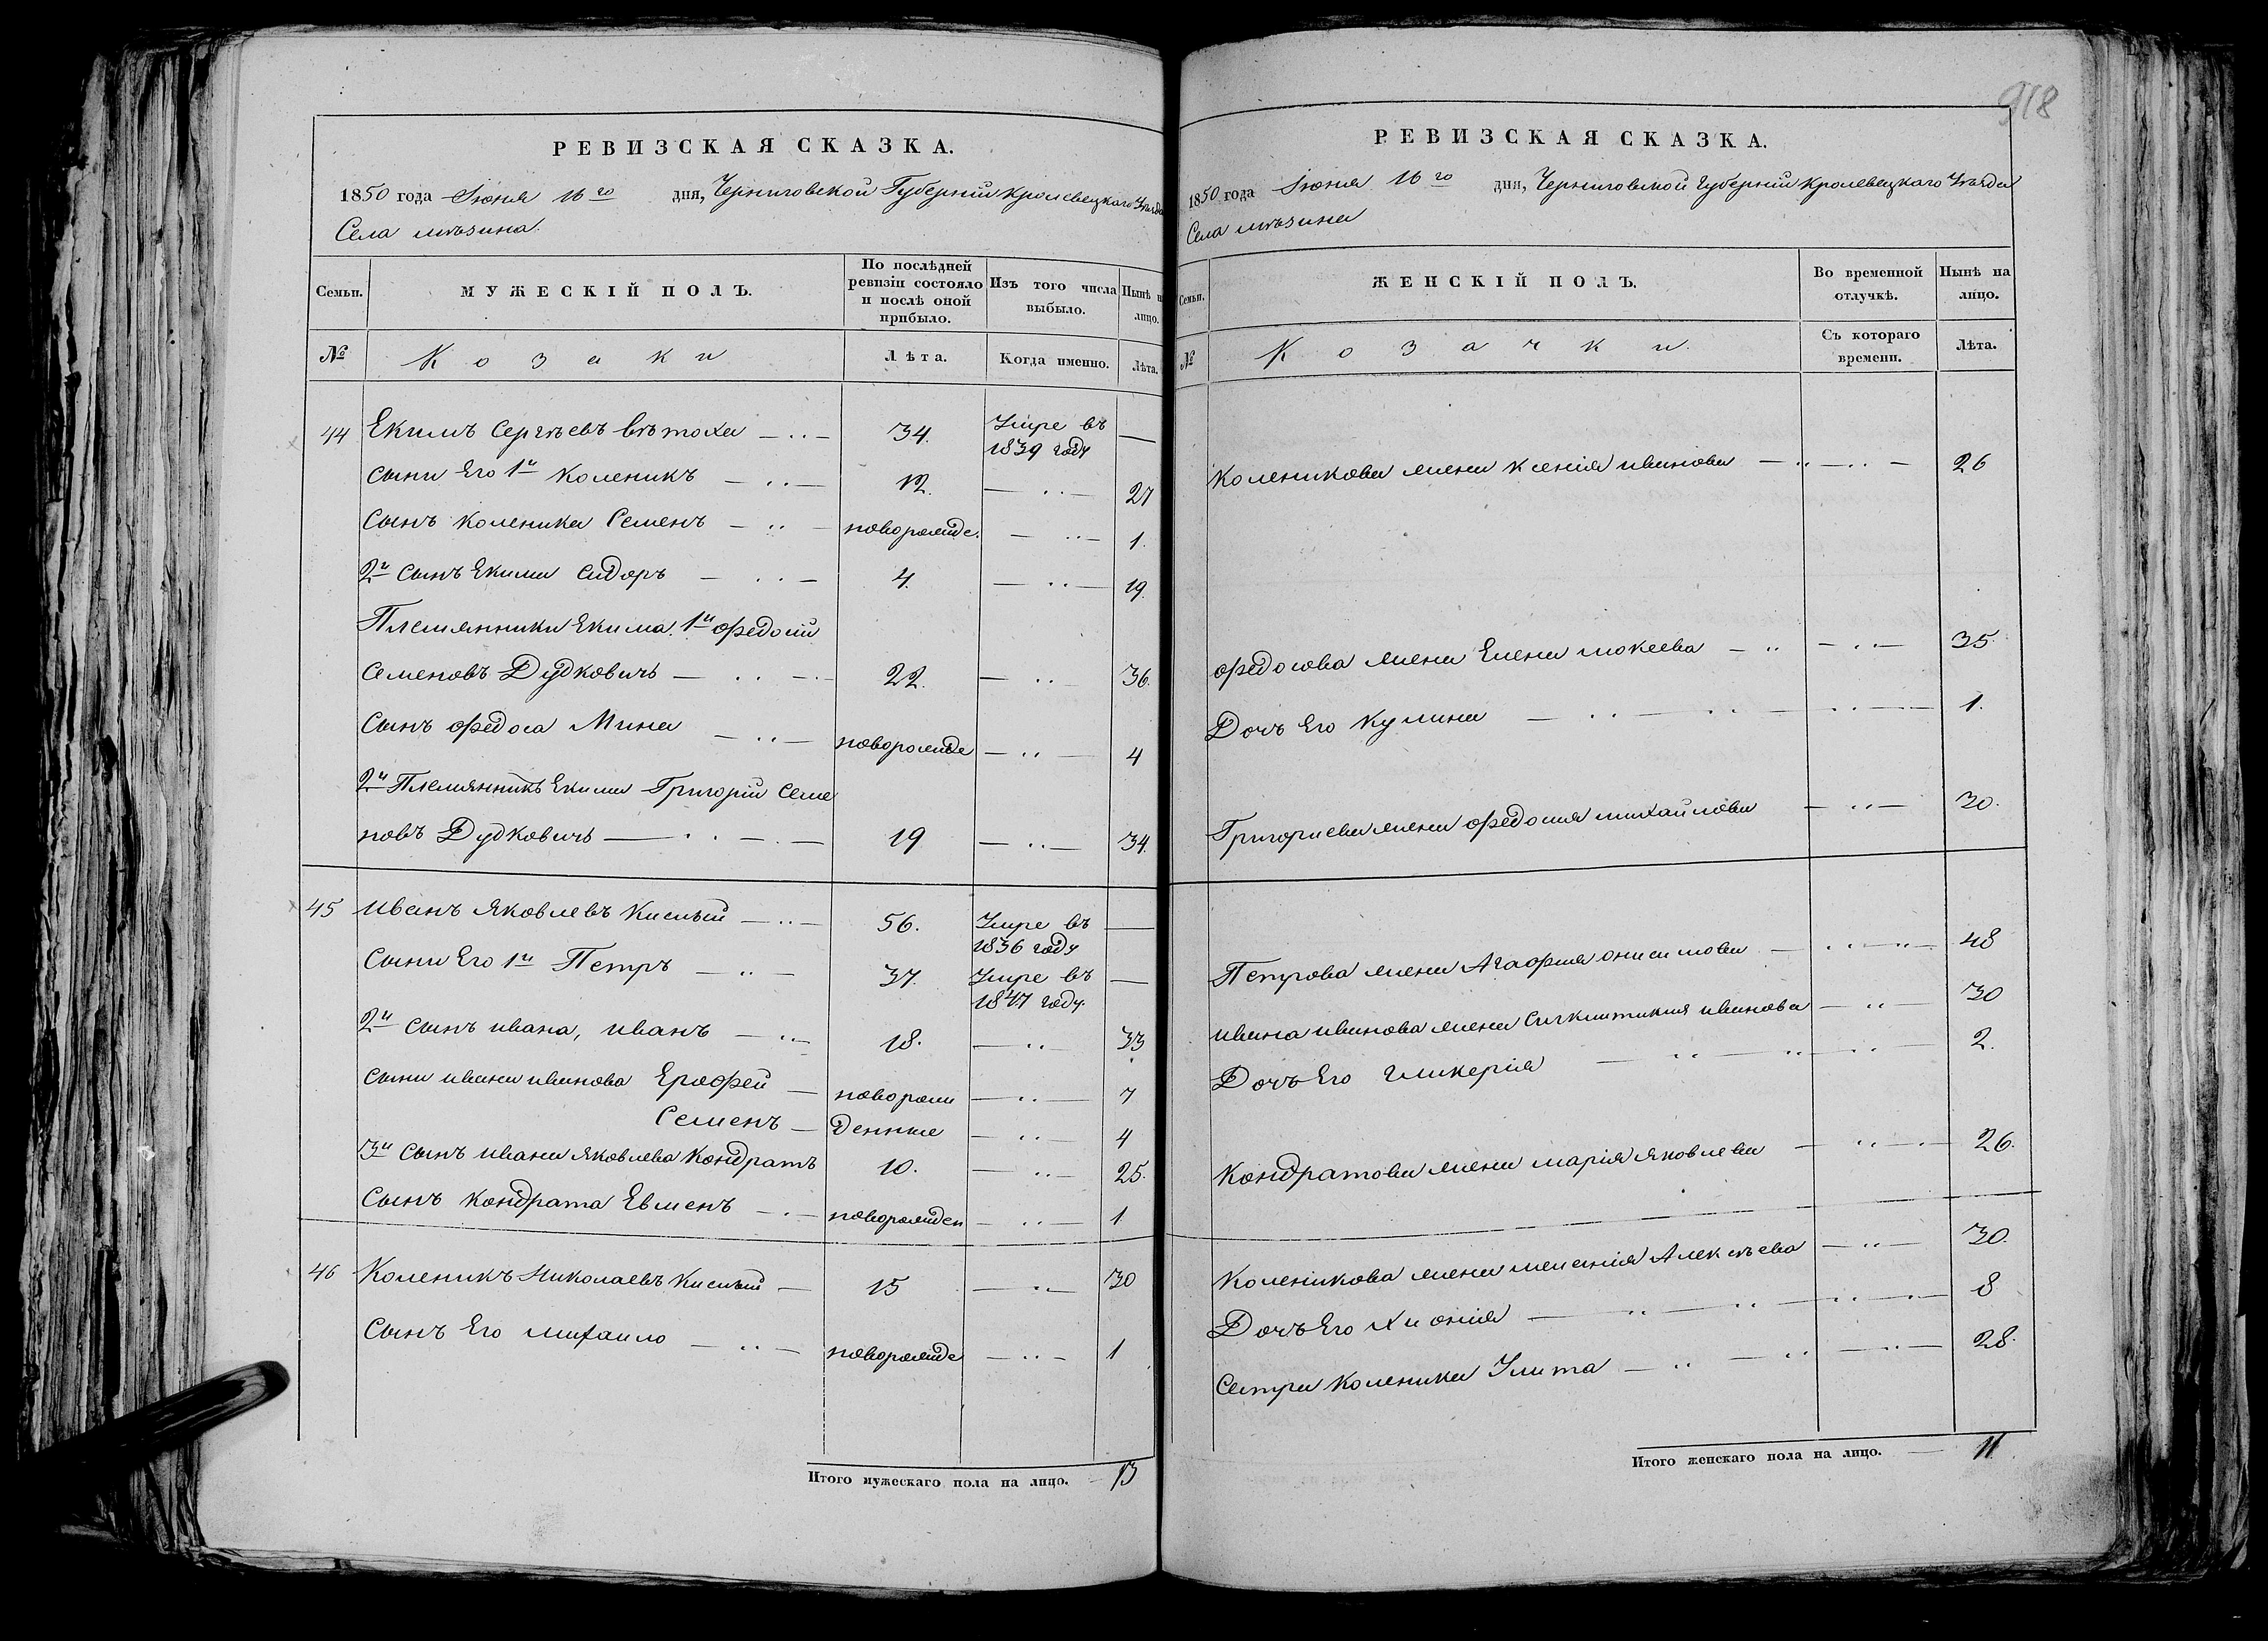 РЕВИЗСКАЯ СКАЗКА.
1850 года Іюня 16го дня, Черниговской Губерніи Кролевецкаго Уѣзда
Села Мѣзина.
Семьи. МУЖЕСКІЙ ПОЛЪ. По послѣдней ревизіи состояло и послѣ оной прибыло. Изъ того числа выбыло. Нынѣ на лицо.
№ Козаки Лѣта. Когда именно. Лѣта.
44 Екимъ Сергѣевъ Вѣтоха 34. Умре въ 1839 году —
Сыны Его 1й Коленикъ 12. 27
Сынъ Коленика Семенъ новорожде. 1.
2й Сынъ Екима Сидоръ 4. 19.
Племянники Екима. 1й Федосій
Семеновъ Дудковичь 22. 36.
Сынъ Федоса Мина новорожде 4
2й Племянникъ Екима Григорій Семе
новъ Дудковичь 19 34.
45 Иванъ Яковлевъ Кислый 56. Умре въ 1836 году —
Сыны Его 1й Петръ 37. Умре въ 1847 году. —
2й Сынъ Ивана, Иванъ 18. 33
Сыны Ивана Иванова Ерофей новорож 7
Семенъ денные 4
3й Сынъ Ивана Яковлева Кондратъ 10. 25.
Сынъ Кондрата Евменъ новорожден 1
46 Коленикъ Николаевъ Кислый 15 30
Сынъ Его Михаило новорожде 1
Итого мужескаго пола на лицо. 13
918
РЕВИЗСКАЯ СКАЗКА.
1850 года Іюня 16го дня, Черниговской Губерніи Кролевецкаго Уѣзда
Села Мѣзина
Семьи. ЖЕНСКІЙ ПОЛЪ. Во временной отлучкѣ. Нынѣ на лицо.
№ Козачки. Съ котораго времени. Лѣта.
Коленикова жена Ксенія Иванова 26
Федосова жена Елена Мокеева 35.
Дочь Его Кулина 1.
Григориева жена Федосия Михайлова 30.
Петрова жена Агафия Онисимова 48
Ивана Иванова жена Иванова 30
Дочь Его Гликерія 2.
Кондратова жена Марія Яковлева 26.
Коленікова жена Меланія Алексѣева 30.
Дочь Его Хионія 8
Сестра Коленика Улита 28.
Итого женскаго пола на лицо. 11.